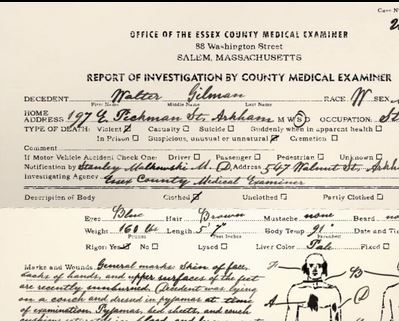 Case N
OFFICE OF THE ESSEX COUNTY MEDICAL EXAMINER
88 Washington Street
SALEM, MASSACHUSETTS
REPORT OF INVESTIGATION BY COUNTY MEDICAL EXAMINER
DECEDENT Walter Gilman RACE W SEX
First Name Middle Name Last Name
HOME ADDRESS 197 E. Pickman St. Arkham M W S D OCCUPATION St
TYPE OF DEATH: Violent Casualty Suicide Suddenly when in apparent health
In Prison Suspicious, unusual or unnatural Cremation
Comment
If Motor Vehicle Accident Check One: Driver Passenger Pedestrian Unknown
Notification by Stanley M. D. Address 547 Walnut St. Arkh
Investigating Agency Essex County Medical Examiner
Description of Body Clothed Unclothed Partly Clothed
Eyes Blue Hair Brown Mustache none Beard no
Weight 160 lb Length 5' 7" Body Temp 91° Date and Ti
Rigor: Yes No Lysed Liver Color Pale Fixed
Marks and Wounds General marks: Skin of face,
backs of hands, and upper surfaces of the feet
are recently sunburned. Accident was lying
on a couch and dressed in pyjamas at time
of examination. Pyjamas, bed sheets, and couch